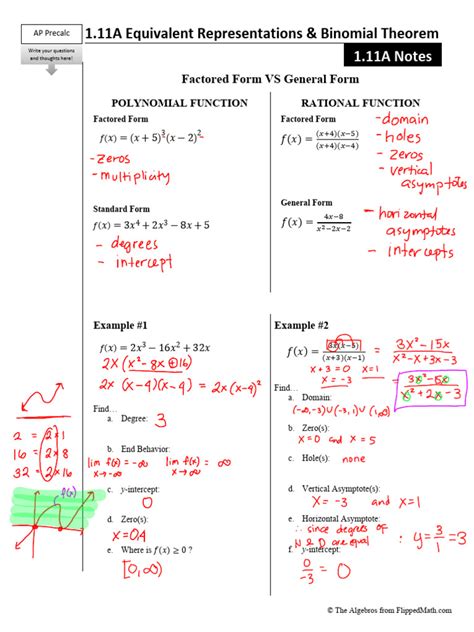 AP Precalc
Write your questions
and thoughts here!
1.11A Equivalent Representations & Binomial Theorem
1.11A Notes
Factored Form VS General Form
POLYNOMIAL FUNCTION
Factored Form
f(x) = (x + 5)³(x − 2)²
-zeros
-multiplicity
Standard Form
f(x) = 3x⁴ + 2x³ − 8x + 5
- degrees
- intercept
RATIONAL FUNCTION
Factored Form
f(x) = (x+4)(x−5)/(x+4)(x−4)
-domain
-holes
- zeros
- vertical
asymptotes
General Form
f(x) = 4x−8/x²−2x−2
- horizontal
asymptotes
- intercepts
Example #1
f(x) = 2x³ − 16x² + 32x
2x(x²-8x+16)
2x (x-4)(x-4) = 2x(x-4)²
Find…
a. Degree: 3
2 = 2×1
16 = 2×8
32 = 2×16
b. End Behavior:
lim f(x) = -∞ lim f(x) = ∞
x→-∞ x→∞
f(x)
c. y-intercept:
0
d. Zero(s):
x=0,4
e. Where is f(x) ≥ 0 ?
[0,∞)
Example #2
f(x) = 3x(x−5)/(x+3)(x−1) = 3x²-15x/x²-x+3x-3
x+3=0 x=1
x=-3
= 3x²-15x/x²+2x-3
Find…
a. Domain:
(-∞,-3)∪(-3,1)∪(1,∞)
b. Zero(s):
x=0 and x=5
c. Hole(s): none
d. Vertical Asymptote(s):
x=-3 and x=1
e. Horizontal Asymptote:
∴ since degrees of
N & D are equal
y=3/1=3
f. y-intercept:
0/-3 = 0
© The Algebros from FlippedMath.com